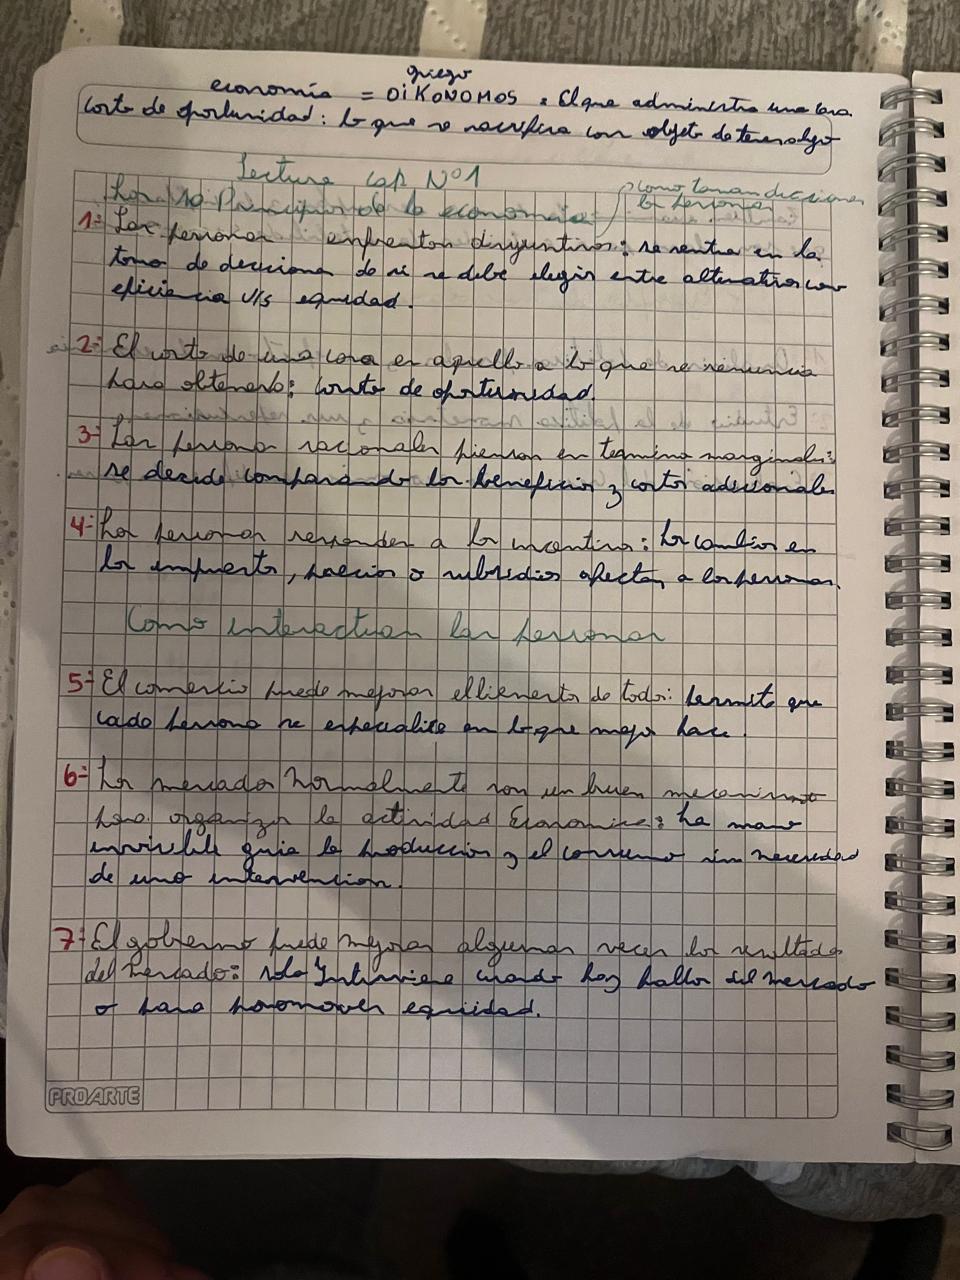 griego
economía = OIKONOMOS = El que administra una casa.
costo de oportunidad: lo que se sacrifica con objeto de tener algo
Lectura cap N°1
Los 10 Principios de la economía
como toman decisiones
las personas
1- Las personas enfrentan disyuntivas: se centra en la
toma de decisiones de si se debe elegir entre alternativas como
eficiencia v/s equidad.
2- El costo de una cosa es aquello a lo que se renuncia
para obtenerlo: costo de oportunidad.
3- Las personas racionales piensan en termino marginales:
se decide comparando los beneficios y costos adicionales
4- Las personas responden a los incentivos: los cambios en
los impuestos, precios o subsidios afectan a las personas.
Como interactuan las personas
5- El comercio puede mejorar el bienestar de todos: permite que
cada persona se especialice en lo que mejor hace.
6- Los mercados Normalmente son un buen mecanismo
para organizar la actividad Económica: La mano
invisible guia la producción y el consumo sin necesidad
de una intervencion.
7- El gobierno puede mejorar algunas veces los resultados
del mercado: solo Interviene cuando hay fallos del mercado
o para promover equidad.
PROARTE